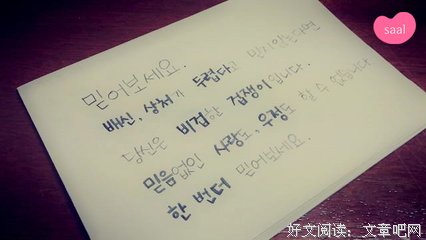 saal
믿어보세요.
배신, 상처가 두렵다고 믿지않는다면
당신은 비겁한 겁쟁이입니다.
믿음없인 사랑도, 우정도 할 수 없습니다
한 번더 믿어보세요.
好文阅读: 文章吧网